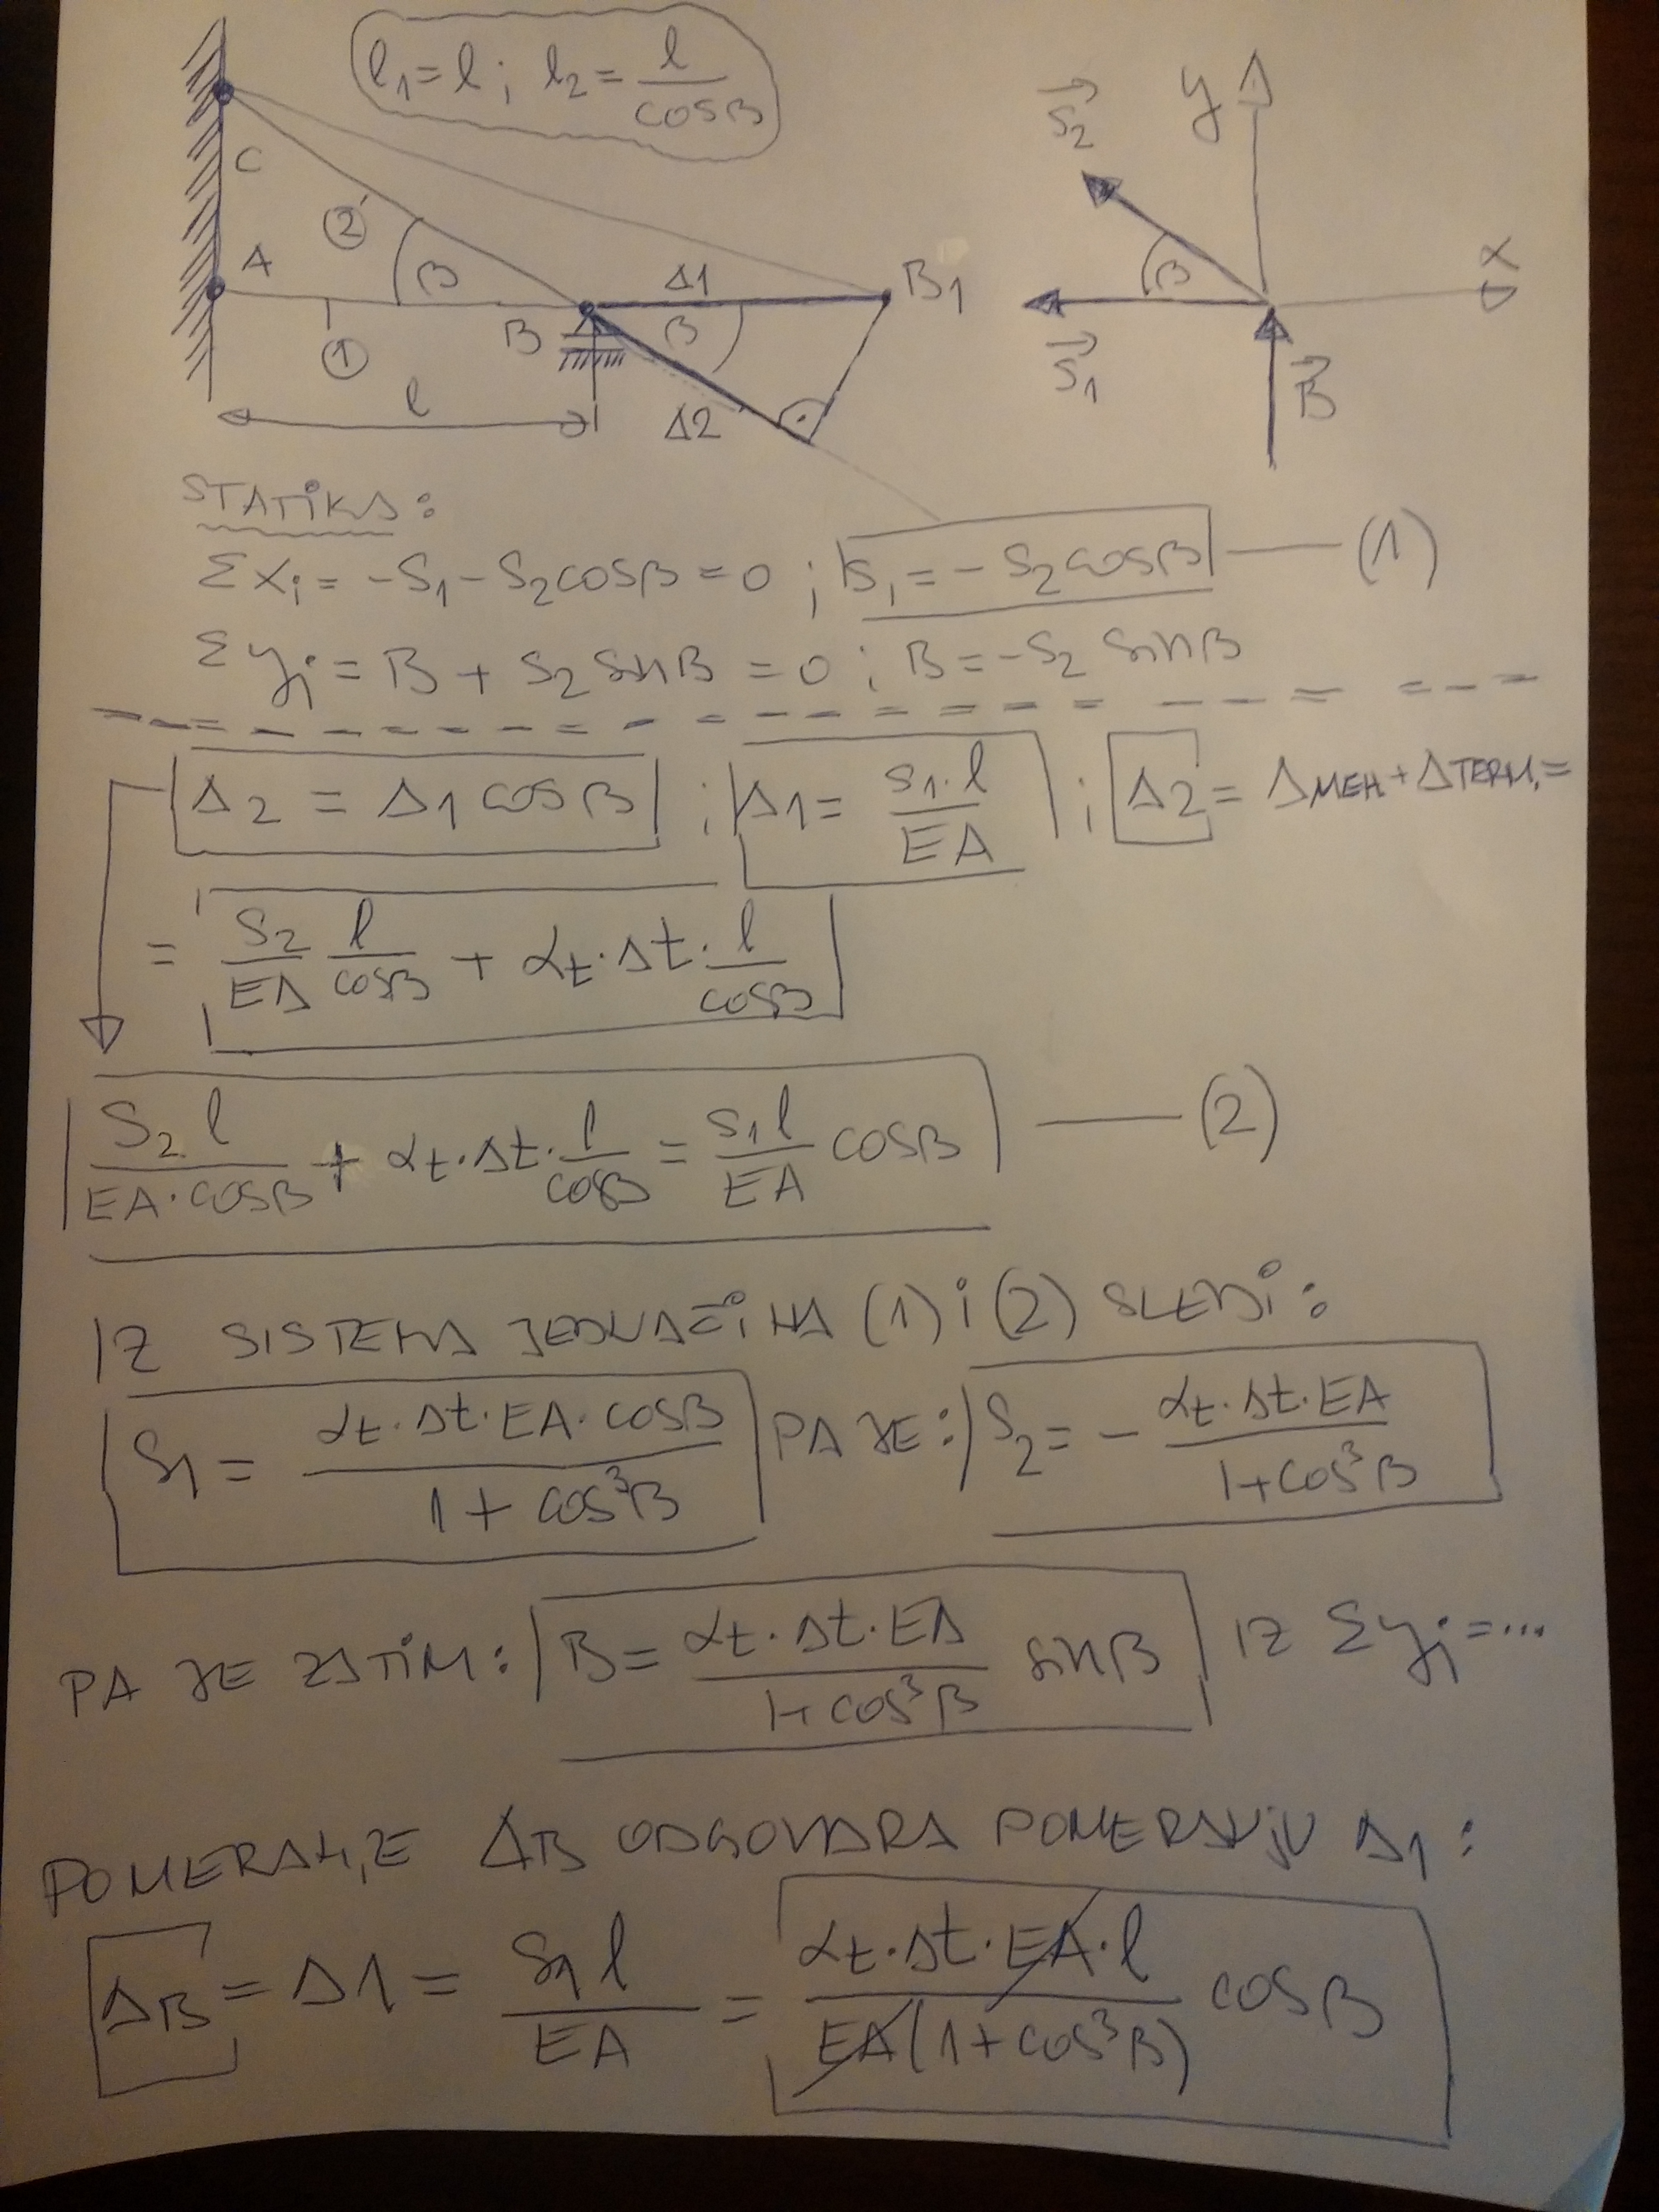 l₁=l; l₂= l/cosβ
S₂→ y
C
② β
A Δ1 B₁ β x
B β
① S₁→ B→
l Δ2
STATIKA:
ΣXi = -S₁ - S₂cosβ = 0 ; S₁ = -S₂cosβ —— (1)
Σyi = B + S₂ sinβ = 0 ; B = -S₂ sinβ
Δ₂ = Δ1 cosβ ; Δ1 = S₁·l/EA ; Δ2 = ΔMEH + ΔTERM. =
= S₂/EA l/cosβ + αt·Δt· l/cosβ
S₂ l/EA·cosβ + αt·Δt· l/cosβ = S₁l/EA cosβ —— (2)
IZ SISTEMA JEDNAČINA (1) i (2) SLEDI:
S₁ = αt·Δt·EA·cosβ/1+cos³β PA JE: S₂ = - αt·Δt·EA/1+cos³β
PA JE ZATIM: B = αt·Δt·EA/1+cos³β sinβ IZ Σyi = ...
POMERANJE ΔB ODGOVARA POMERANJU Δ1 :
ΔB = Δ1 = S₁l/EA = αt·Δt·EA·l/EA(1+cos³β) cosβ